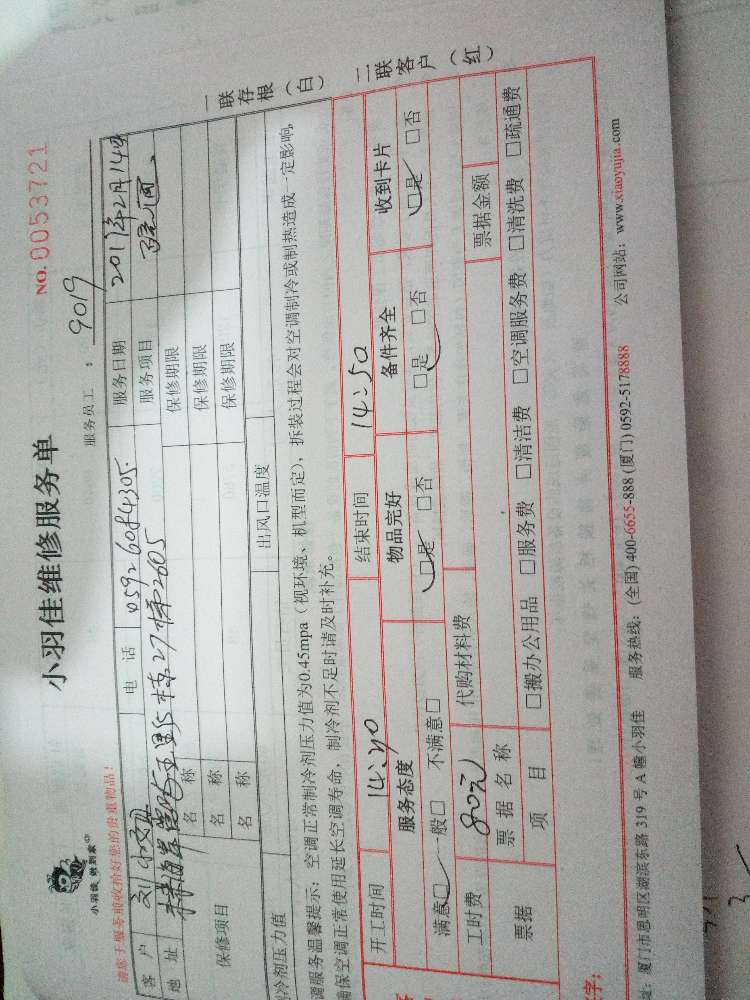 小羽佳维修服务单
NO.0053721
小羽佳 做到家
服务员工：9019
请您于服务前收拾好您的贵重物品！
客户 电话 0592 6084305. 服务日期 2017年2月14日
地址 27栋2605 服务项目
保修项目 名称 保修期限
名称 保修期限
名称 保修期限
制冷剂压力值 出风口温度
调服务温馨提示：空调正常制冷剂压力值为0.45mpa（视环境、机型而定），拆装过程会对空调制冷或制热造成一定影响，
确保空调正常使用延长空调寿命，制冷剂不足时请及时补充。
开工时间 14:40 结束时间 14:50
服务态度 物品完好 备件齐全 收到卡片
满意□ 一般□ 不满意□ □是 □否 □是 □否 □是 □否
工时费 80元 代购材料费
票据 票据名称 票据金额
项目 □搬办公用品 □服务费 □清洁费 □空调服务费 □清洗费 □疏通费
字：
址：厦门市思明区湖滨东路 319 号 A 幢小羽佳 服务热线：(全国) 400-6655-888 (厦门) 0592-5178888 公司网站：www.xiaoyujia.com
一联存根（白）
二联客户（红）